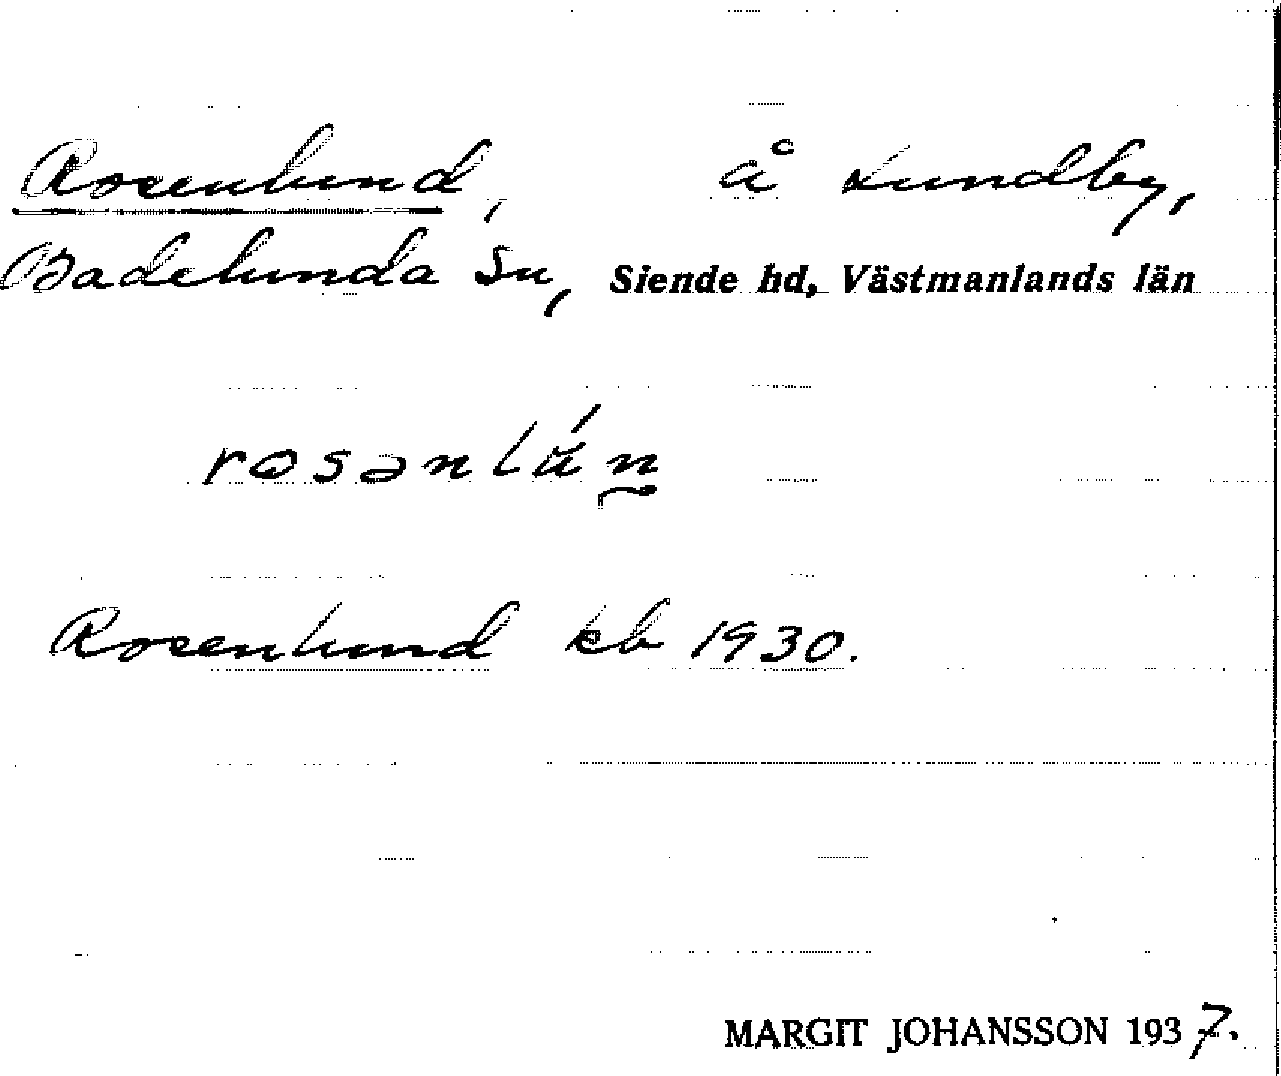 Rosenlund, å Lundby,
Badelunda sn, Siende hd, Västmanlands län
rosənlún̰
Rosenlund kb 1930.
MARGIT JOHANSSON 1937.